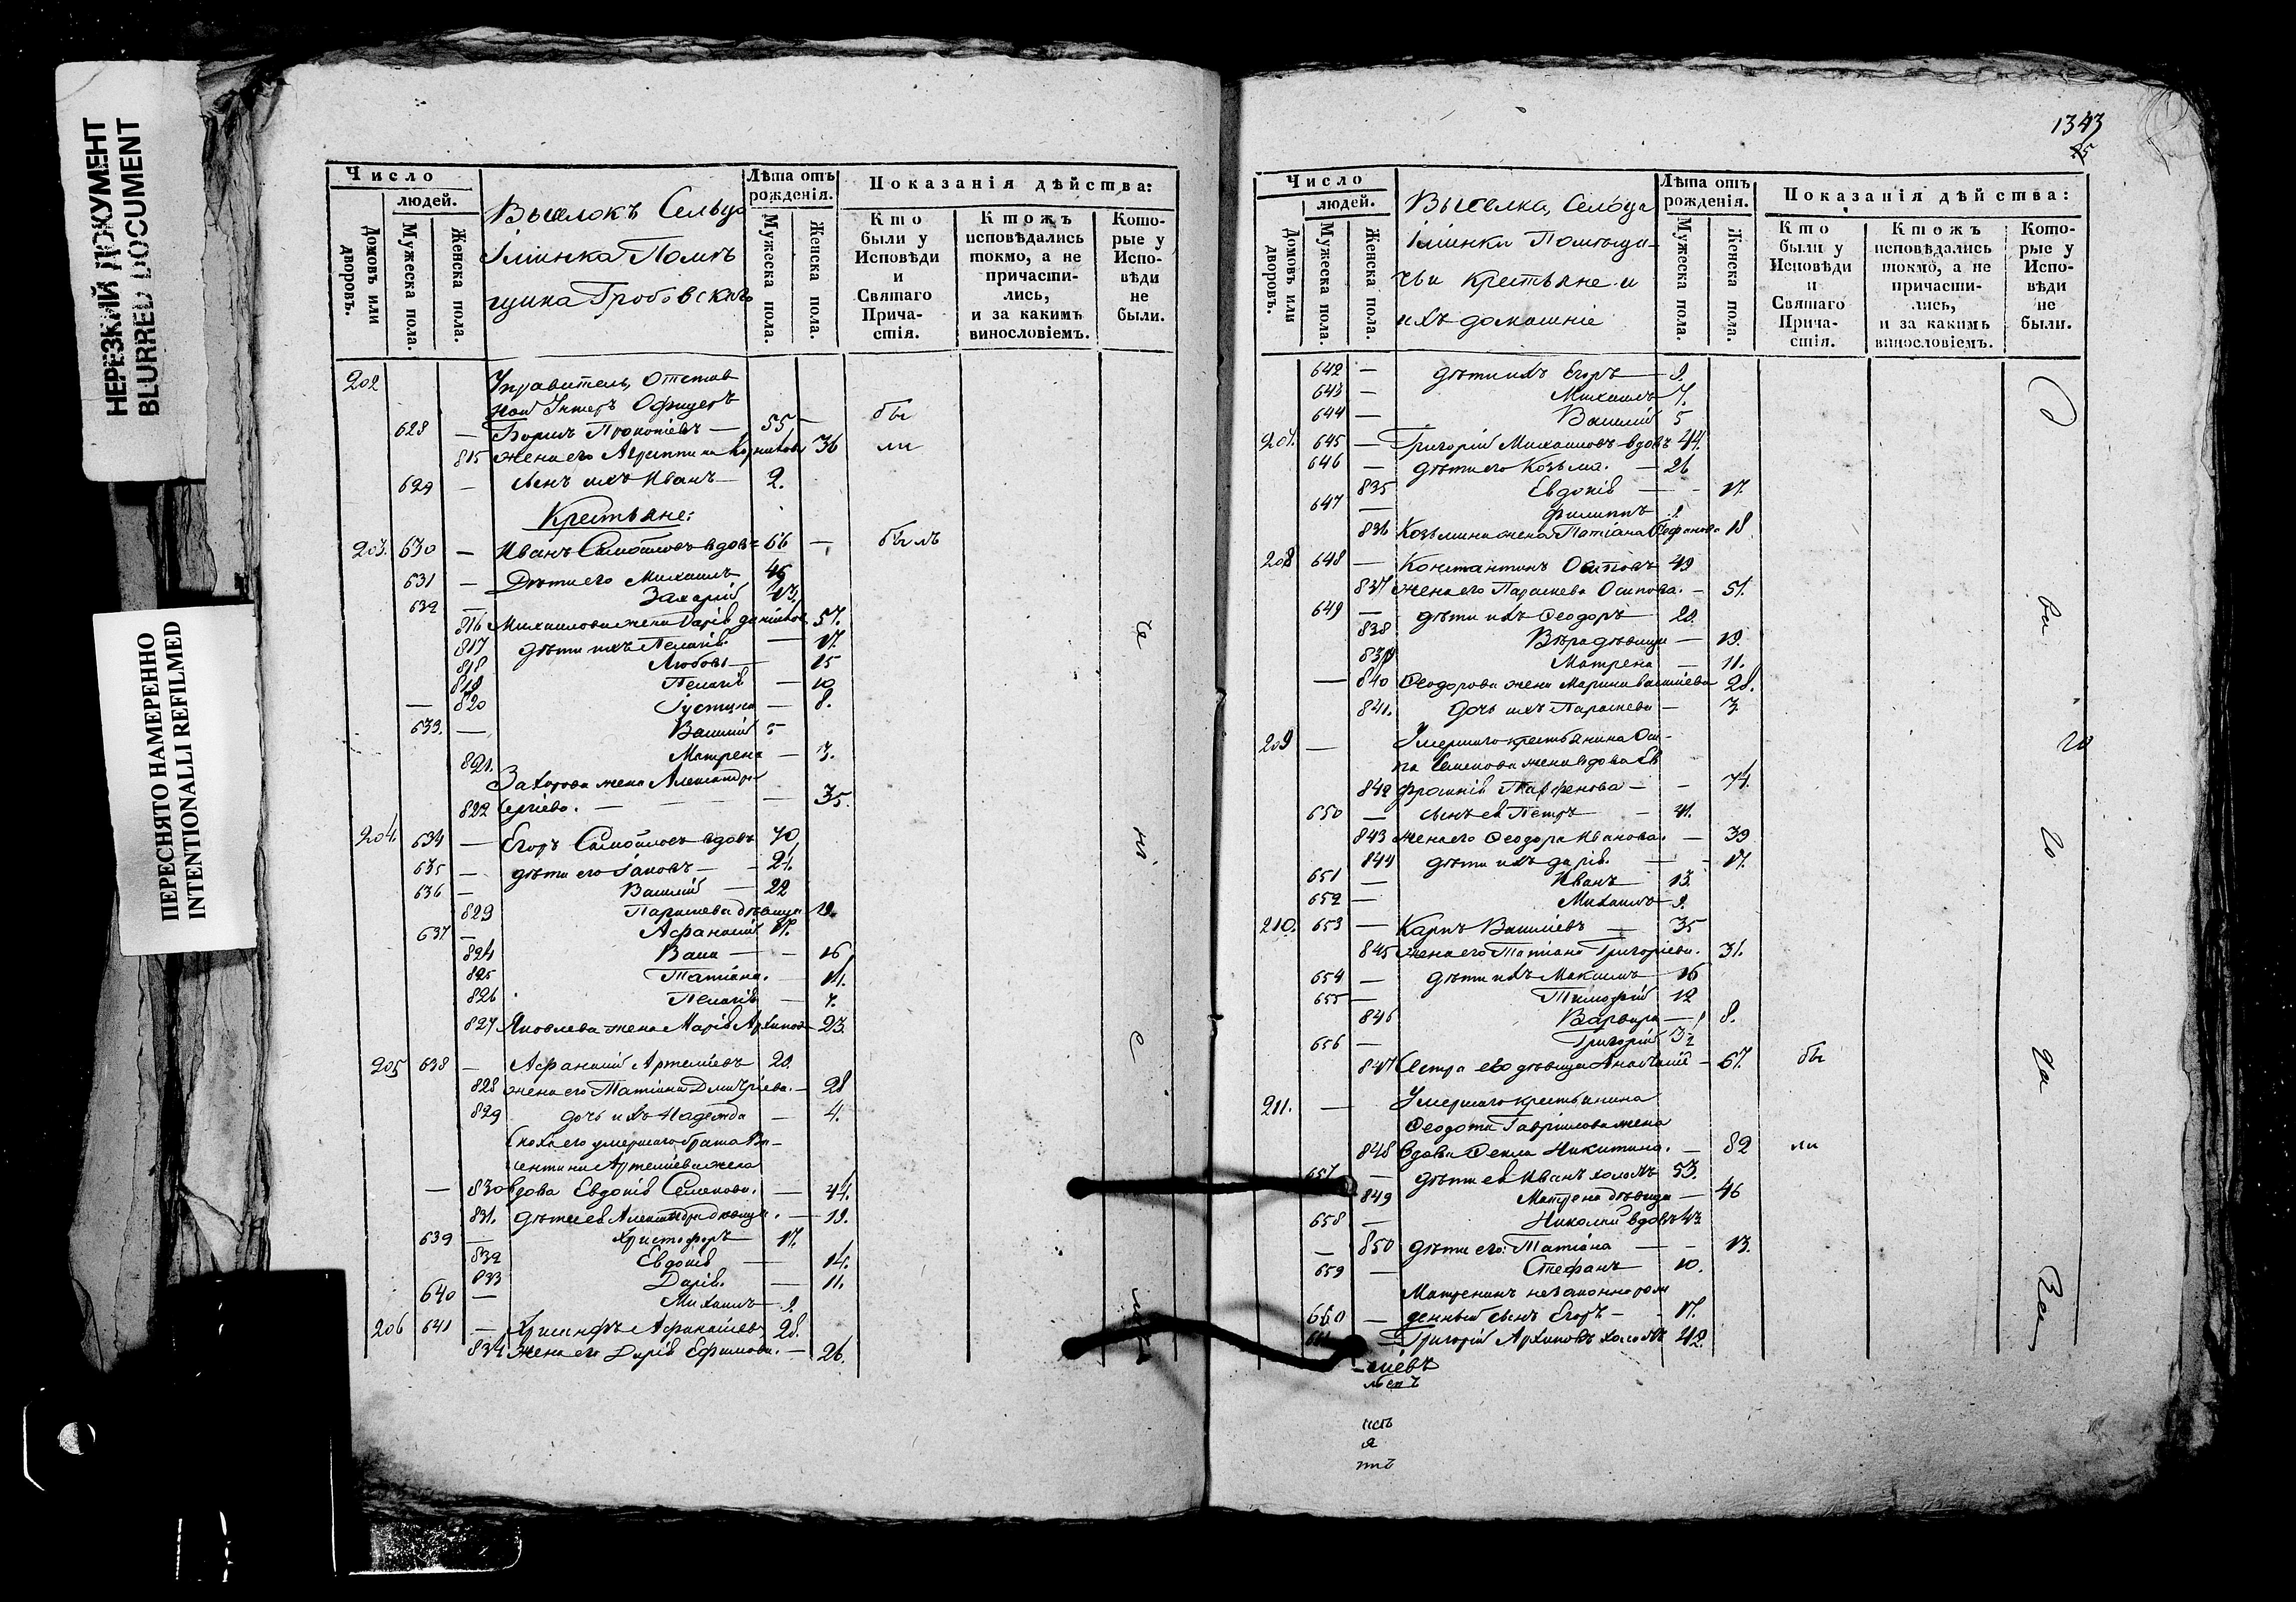 НЕРЕЗКИЙ ДОКУМЕНТ
BLURRED DOCUMENT
ПЕРЕСНЯТО НАМЕРЕННО
INTENTIONALLI REFILMED
Число
людей.
Домовъ или дворовъ.
Мужеска пола.
Женска пола.
Выселокъ Сельца
Помѣ
щика Гробовскаго
Лѣта отъ рожденія.
Мужеска пола.
Женска пола.
Показанія дѣйства:
Кто были у Исповѣди и Святаго Причастія.
Ктожъ исповѣдались токмо, а не причастились, и за какимъ винословіемъ.
Которые у Исповѣди не были.
202 Управитель, Отстав
ной Унтеръ Офицеръ
628 — Борисъ Прокопіевъ — 55 — бы
815 жена его Агриппина 36 ли
629 — сынъ ихъ Иванъ — 2.
Крестьяне:
203. 630 — Иванъ Самойловъ вдовъ 66 — былъ
631 — Дѣти его Михаилъ 46
632 — Захарій 43.
816 Михаилова жена Дарія 57.
817 дѣти ихъ Пелагія — 17.
818 Любовь — 15
819 Пелагія — 10
— 820 Іустина — 8.
633. — Василій 5
821. Матрена — 3.
Захарова жена Александра
822 Сергіева. — 35.
204. 634 — Егоръ Самойловъ вдовъ 70
635 — дѣти его Іаковъ — 24.
636 — Василій — 22
823 Параскева дѣвица 19.
637. — Афанасій 17.
824 Васа — 16
825 Татіана. — 11.
826 Пелагія — 7.
827 Яковлева жена Марія Архипова 23.
205 638 — Афанасій Артеміевъ 20.
828 жена его Татіана Дмитріева. — 28
829 дочь ихъ Надежда — 4.
Сноха его умершаго брата
Артеміева жена
— 830 вдова Евдокія Семенова. — 44.
831. дѣти ея Александра дѣвица. — 19.
639 — Христофоръ 17.
832 Евдокія — 14.
833 Дарія. — 11.
640 — Михаилъ — 9.
206 641 — Хрисанфъ Афанасіевъ 28.
834 Жена его Дарія Ефимова. — 26.
1343
Число
людей.
Домовъ или дворовъ.
Мужеска пола.
Женска пола.
Выселка, Сельца
Помѣщи-
чьи крестьяне и
ихъ домашніе
Лѣта отъ рожденія.
Мужеска пола.
Женска пола.
Показанія дѣйства:
Кто были у Исповѣди и Святаго Причастія.
Ктожъ исповѣдались токмо, а не причастились, и за какимъ винословіемъ.
Которые у Исповѣди не были.
642 — дѣти ихъ Егоръ — 9.
643 — Михаилъ 7.
644 — Василій 5
207. 645 — Григорій Михаиловъ вдовъ 44.
646 — дѣти его Козьма. — 26
835 Евдокія — 17.
647 — Филиппъ 9.
836 Козьмина жена Татіана Стефанова 18
208 648 — Константинъ Осиповъ 49
837 жена его Параскева Осипова. — 51.
649 — дѣти ихъ Феодоръ — 20.
838 Вѣра дѣвица — 19.
839 Матрена — 11.
— 840 Феодорова жена Марина Васильева 28.
841. дочь ихъ Параскева — 3.
209 — Умершаго крестьянина Оси-
па Семенова жена вдова Ев
842 фросинія Парфенова — 74.
650 — сынъ ея Петръ — 41.
843 жена его Феодора Иванова. — 39
844 дѣти ихъ Дарія. — 17.
651 — Иванъ 13.
652 — Михаилъ 9.
210. 653 — Карпъ Васильевъ — 35
845 Жена его Татіана Григоріева. 31.
654 — дѣти ихъ Максимъ — 16
655 — Тимофей 12
846 Варвара — 8.
656 — Григорій 3½
847 Сестра его дѣвица Анастасія — 67. бы
211. — Умершаго крестьянина
Феодота Гавріилова жена
848 вдова Фекла Никитина. — 82 ли
657 — дѣти ея Иванъ холостъ 53.
849 Матрена дѣвица — 46
658 — Николай вдовъ 43
— 850 дѣти его: Татіана — 13.
659 — Стефанъ 10.
Матренинъ незаконнорож
660 — денный сынъ Егоръ — 17.
661 — Григорій Архиповъ холостъ 42.